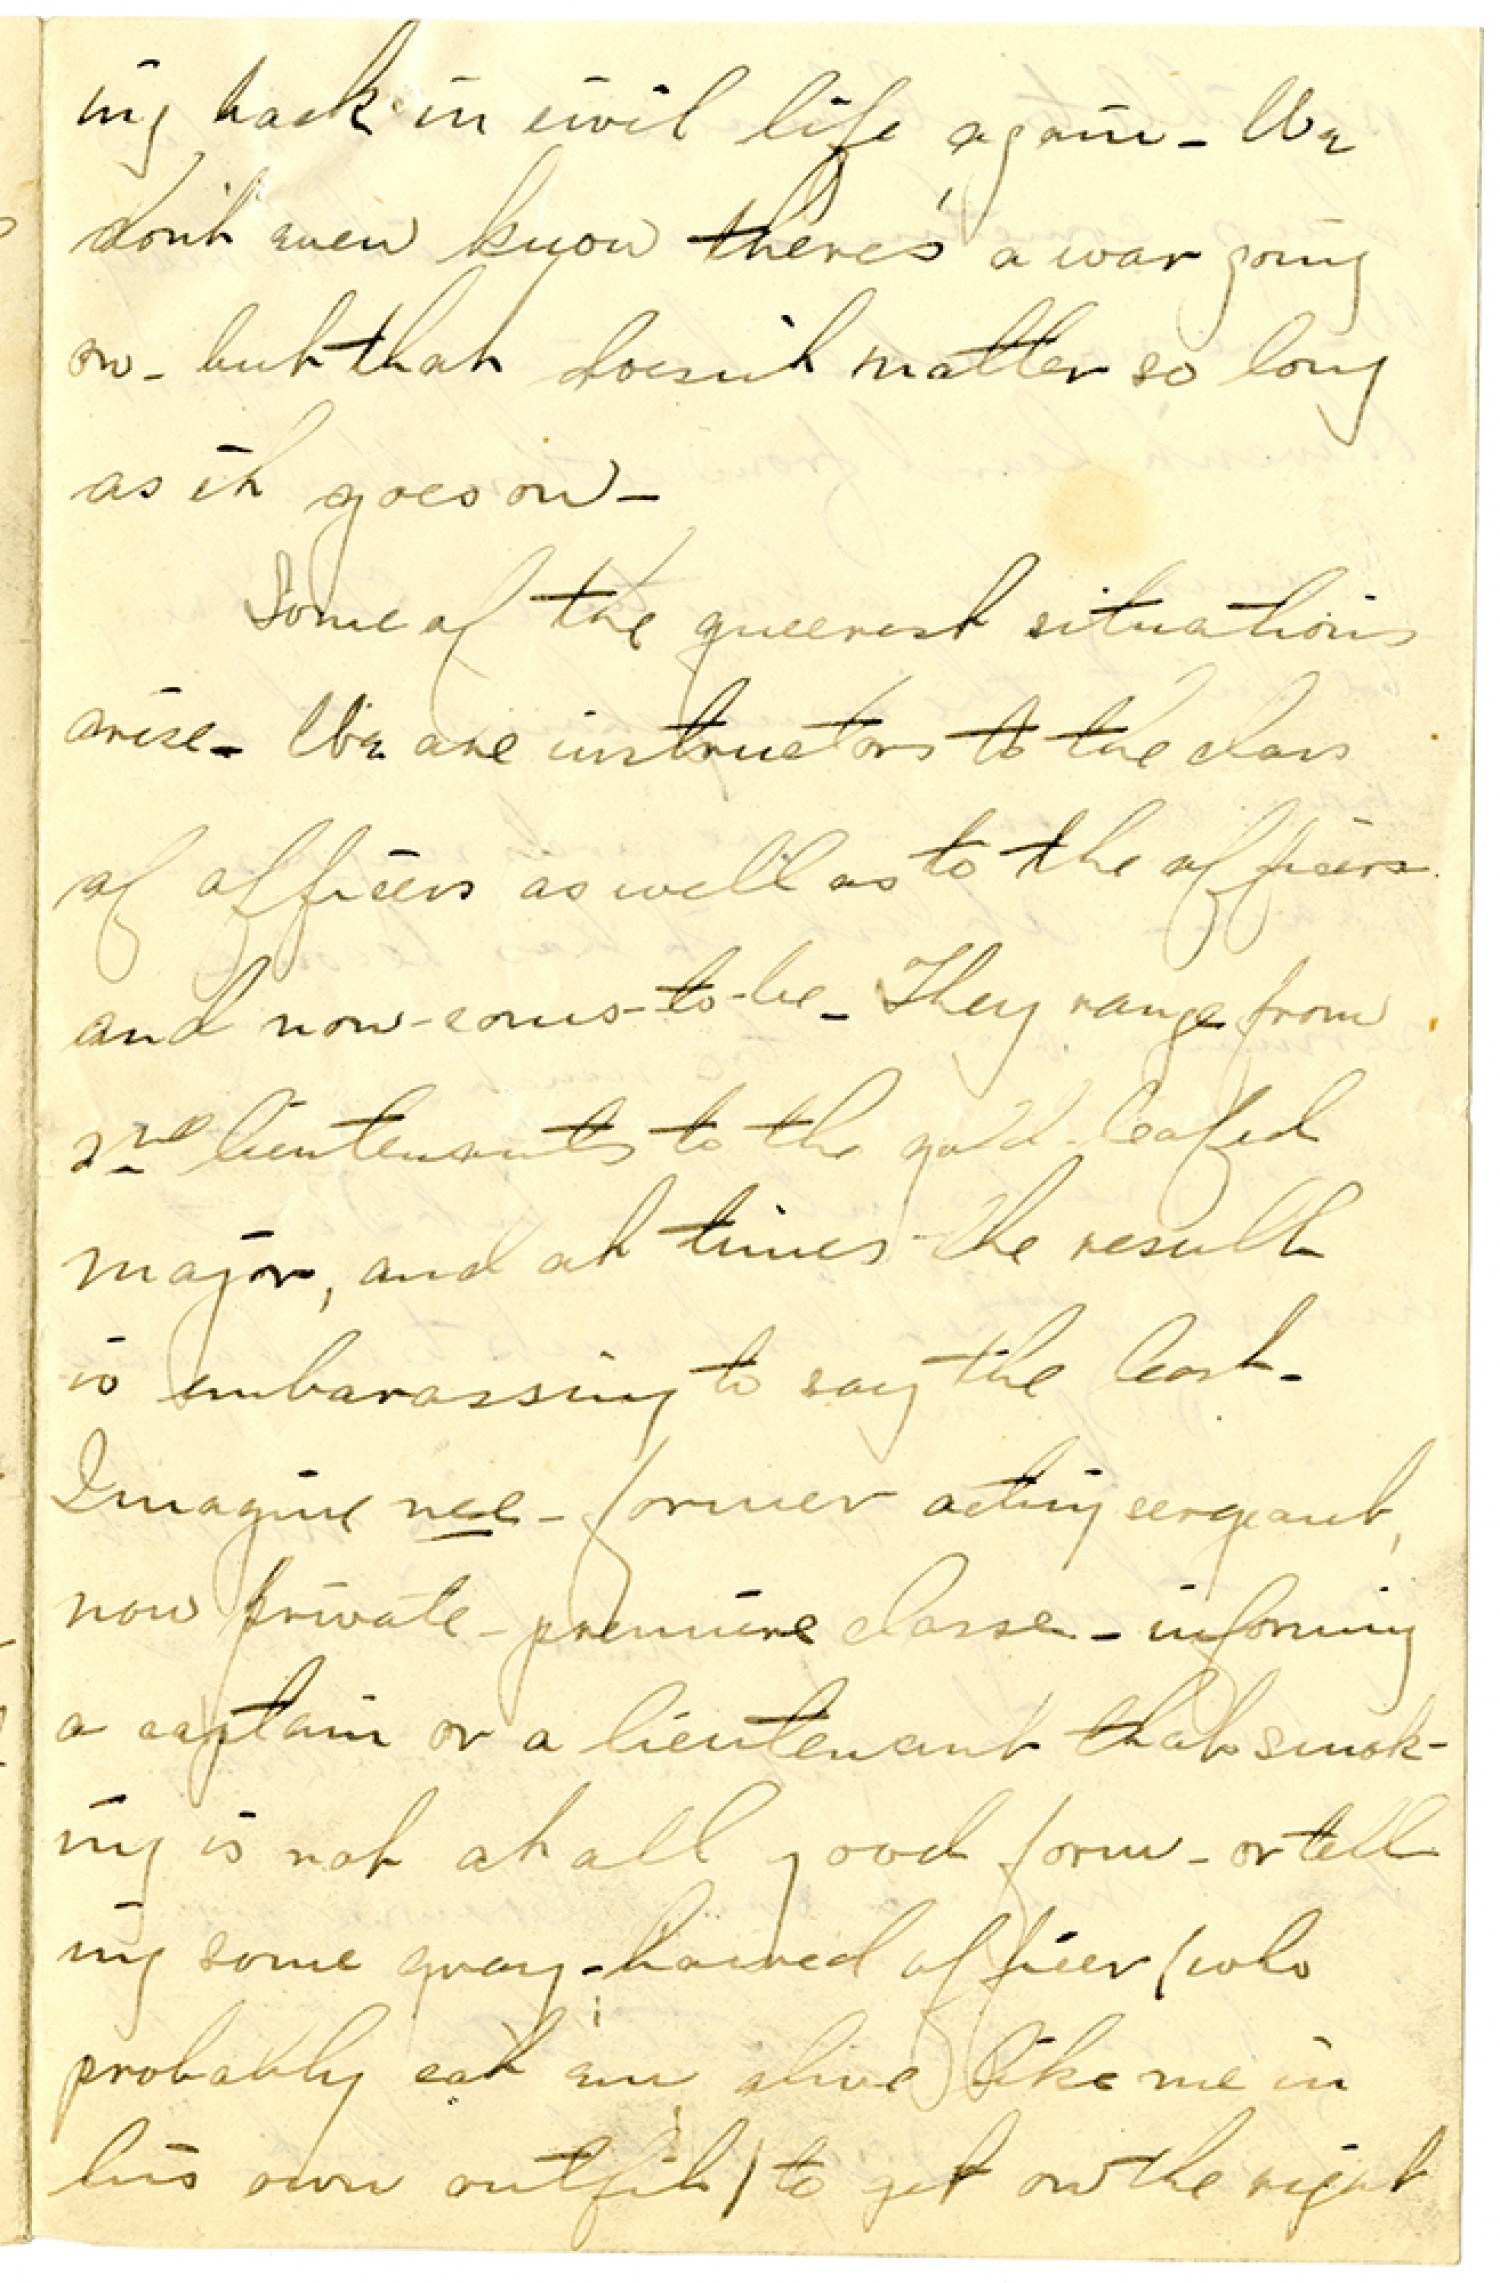 ing back in civil life again - We
don't even know there's a war going
on - but that doesn't matter so long
as it goes on -
Some of the queerest situations
arise - We are instructors to the class
of officers as well as to the officers
and non-coms-to-be - They range from
2nd lieutenants to the gold-leafed
major, and at times the result
is embarassing to say the least -
Imagine me - former acting sergeant,
now private - premiere classe - informing
a captain or a lieutenant that smok-
ing is not at all good form - or tell
ing some gray-haired officer (who
probably eat em alive like me in
his own outfit) to get on the right